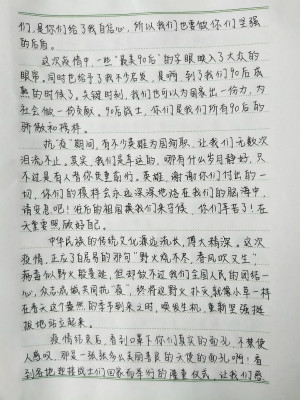 们,是你们给了我自信心,所以我们也要做你们坚强
的后盾。
这次疫情中,一些“最美90后”的字眼映入了大众的
眼帘。同时也给予了我不少启发,是啊,到了我们90后成
熟的时候了。关键时刻,我们也可以为国家出一份力,为
社会做一份贡献。90后战士,你们是我们所有90后的
骄傲和榜样。
抗“疫”期间,有不少英雄为国殉职,让我们无数次
泪流不止。其实,我们是幸运的,哪有什么岁月静好,只
不过是有人替你负重前行。英雄,谢谢你们付出的一
切,你们的模样会永远深深地烙在我们的脑海中,
请安息吧!往后的祖国换我们来守候,你们辛苦了!在
天堂要照顾好自己。
中华民族的传统文化源远流长,博大精深。这次
疫情,正应了白居易的那句“野火烧不尽,春风吹又生”
病毒似野火般蔓延,但却敌不过我们全国人民的团结一
心,众志成城共同抗“疫”,终将这野火扑灭,就像小草一样
在春天这个盎然的季节到来之时,焕发生机,重新坚强挺
拔地站立起来。
疫情结束后,看到口罩下你们真实的面孔,不禁使
人感叹,那是一张张多么美丽善良的天使的面孔啊!看
到各地迎接战士们回家而举行的隆重仪式,让我们感